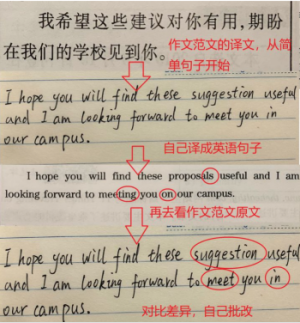 我希望这些建议对你有用,期盼
在我们的学校见到你。
作文范文的译文,从简
单句子开始
I hope you will find these suggestion useful
and I am looking forward to meet you in
our campus.
自己译成英语句子
I hope you will find these proposals useful and I am
looking forward to meeting you on our campus.
再去看作文范文原文
I hope you will find these suggestion useful
and I am looking forward to meet you in
our campus.
对比差异,自己批改